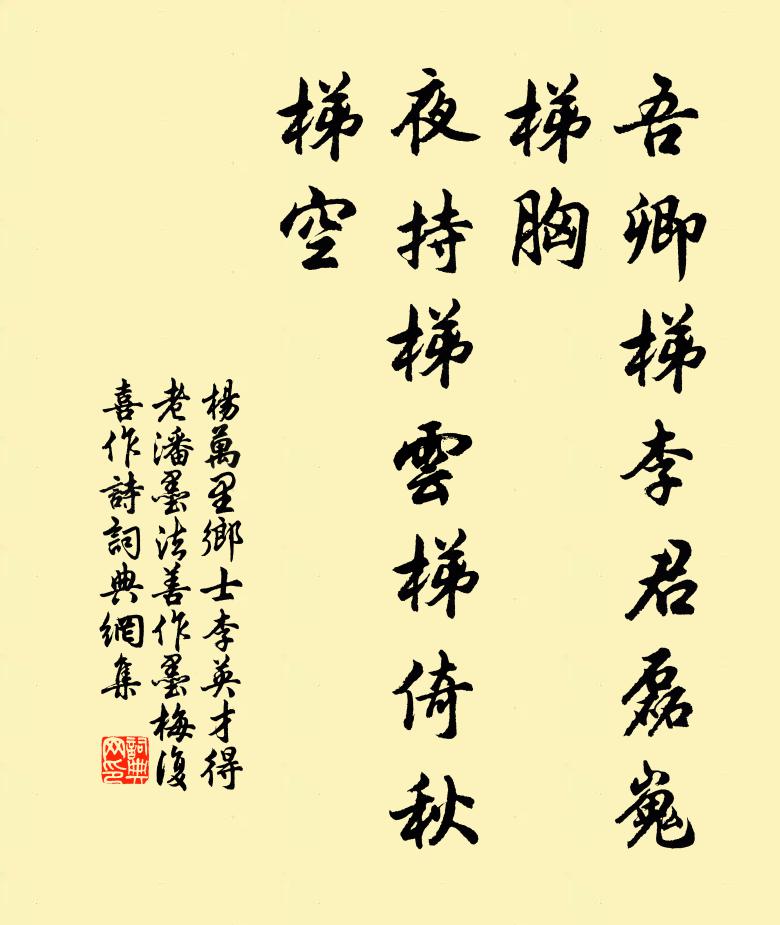 吾卿梯李君磊嵬
梯胸
夜持梯雲梯倚秋
梯空
楊萬里鄉士李英才得
老潘墨法善作墨梅復
喜作詩詞典網集
詞典
网印